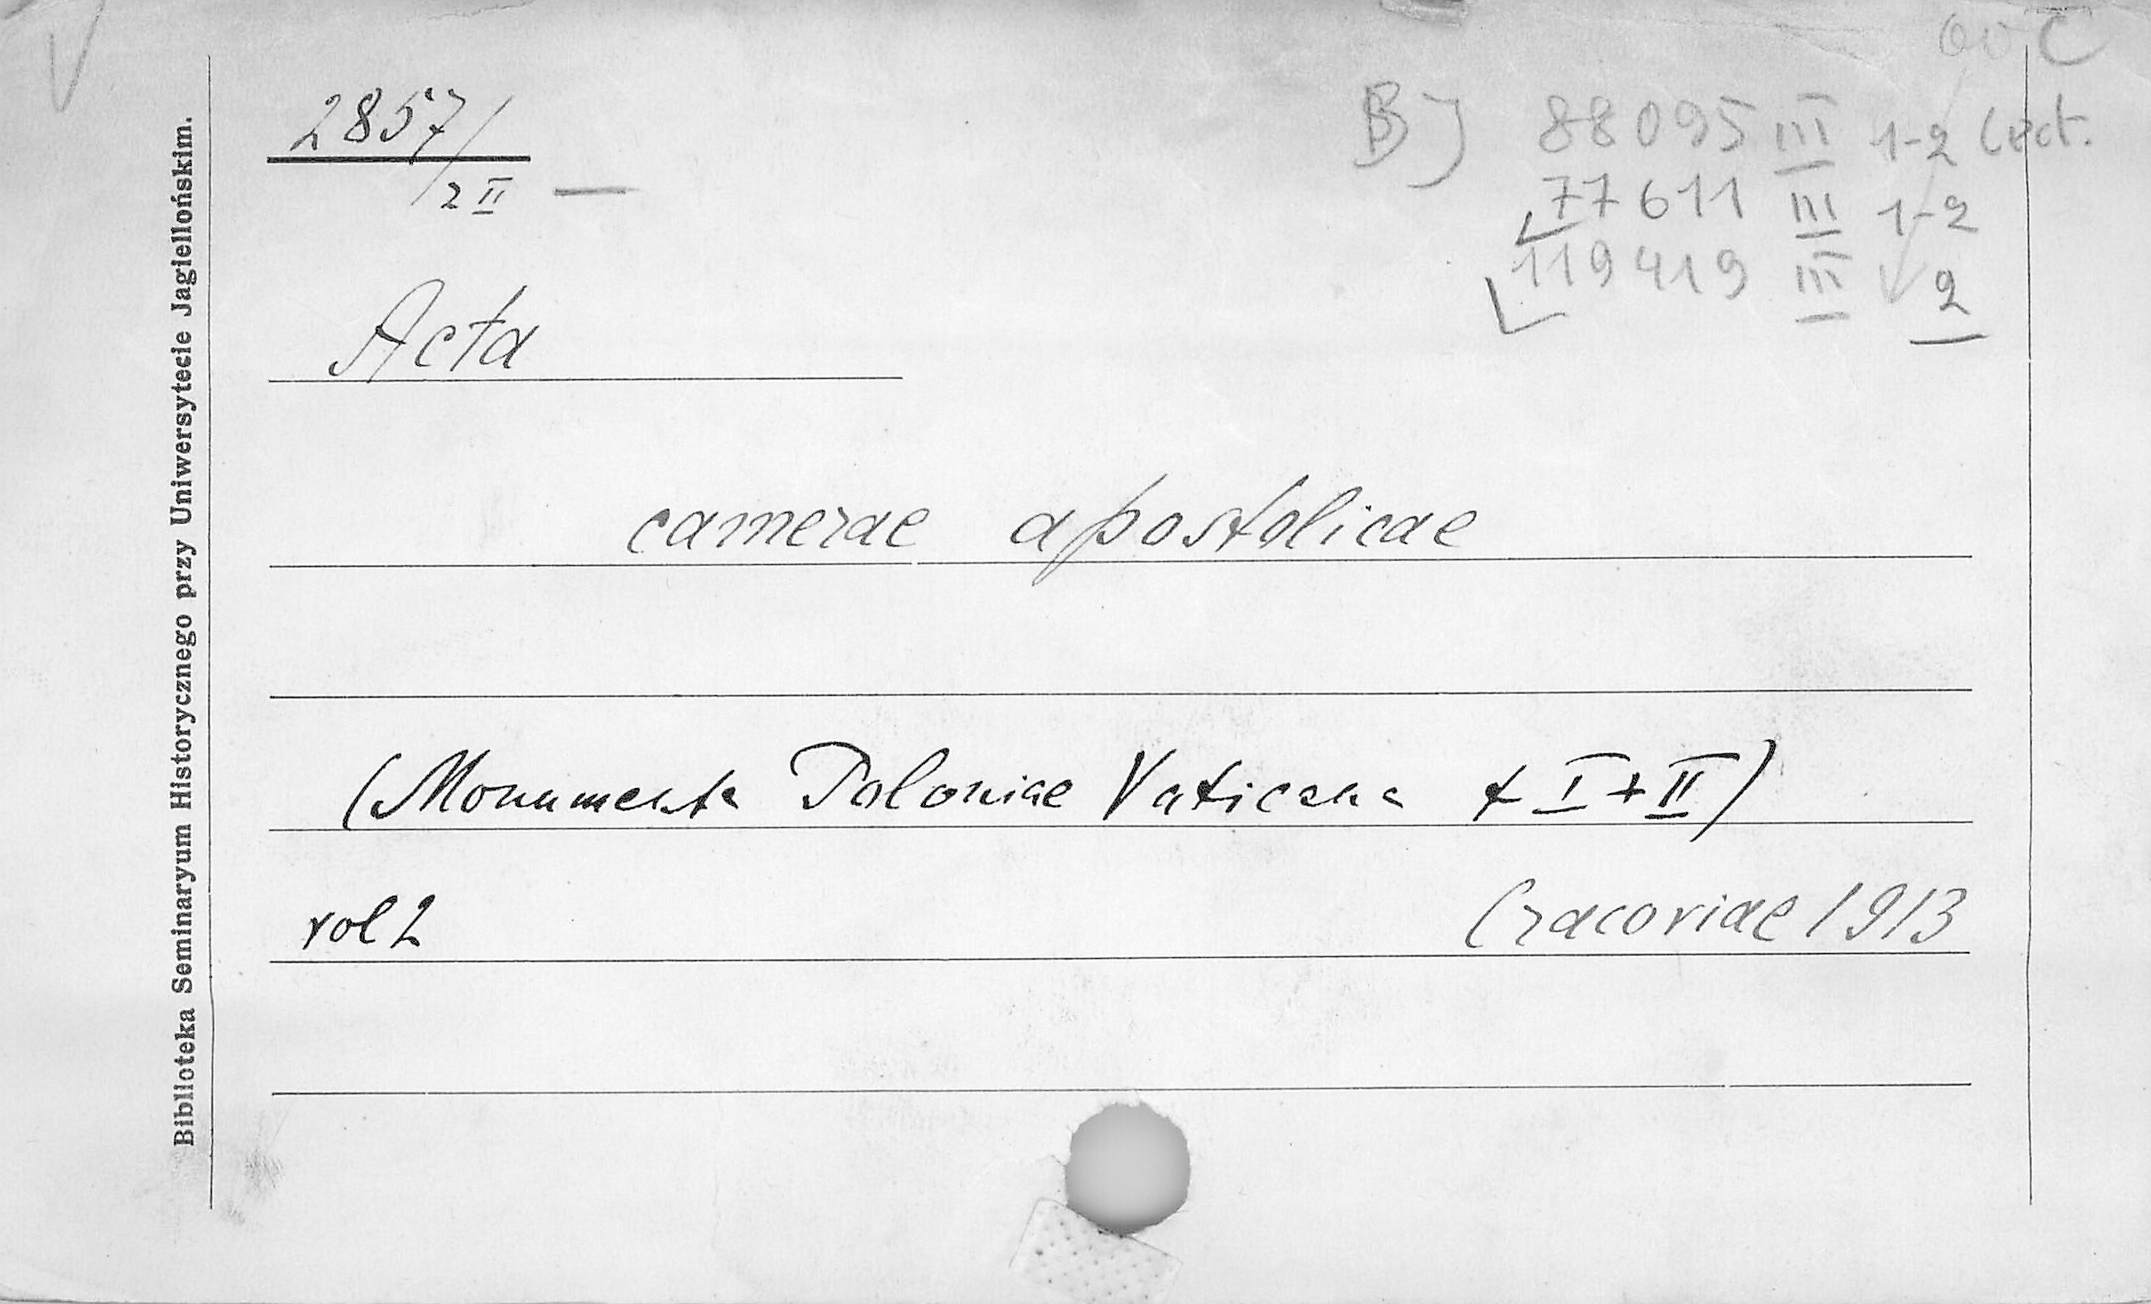 2857/2 II —
BJ 88095 III 1-2 Lect.
77611 III 1-2
119419 III 2
Acta
camerae apostolicae
(Monumenta Poloniae Vaticana t I + II)
vol 2 Cracoviae 1913
Biblioteka Seminaryum Historycznego przy Uniwersytecie Jagiellońskim.